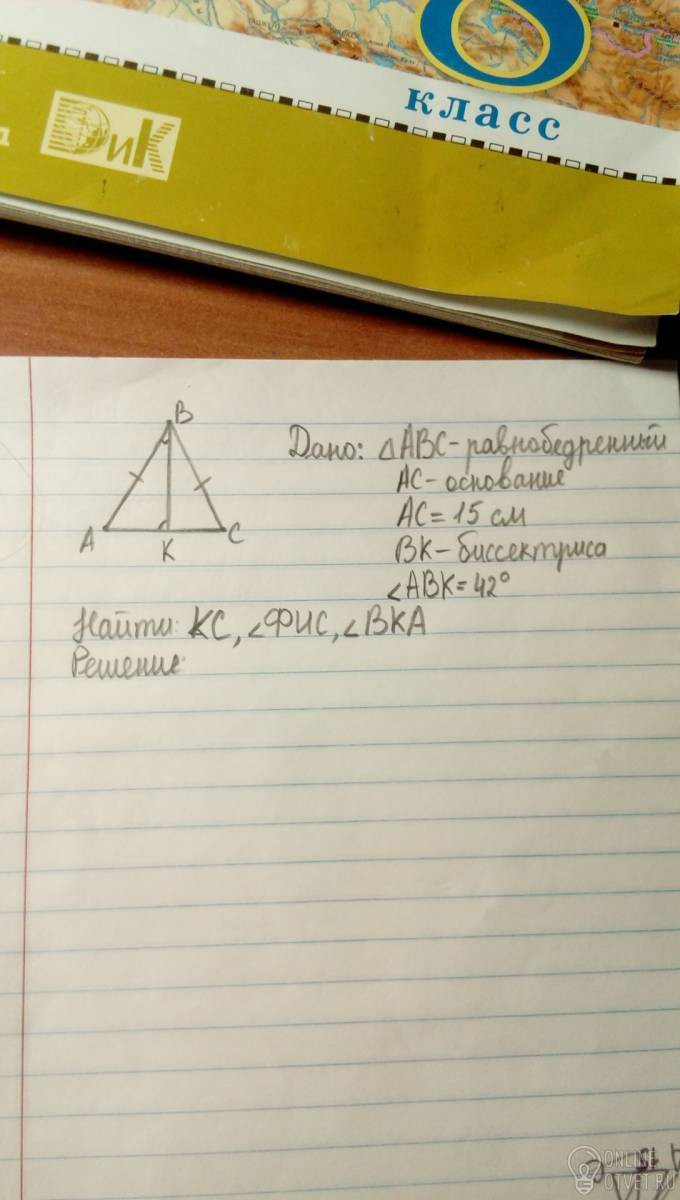 6
класс
ДиК
B
A
K
C
Дано: △ABC-равнобедренный
AC-основание
AC=15 см
BK-биссектриса
∠ABK=42°
Найти: KC, ∠ФИС, ∠BKA
Решение:
ONLINE
OTVET.RU